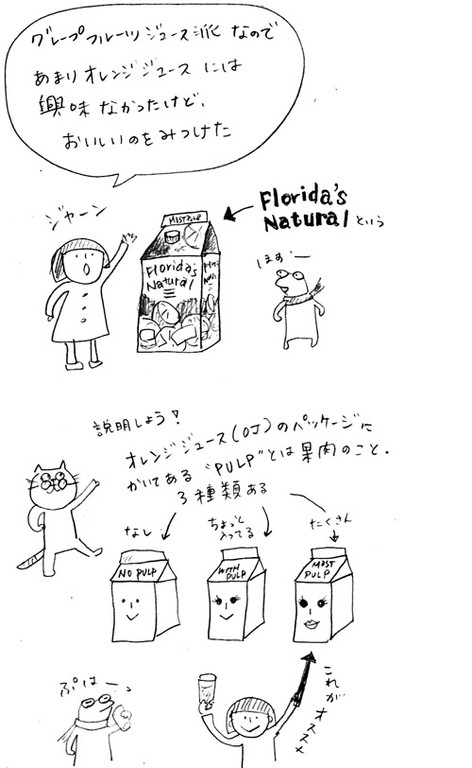 グレープフルーツジュース派なので
あまりオレンジジュースには
興味なかったけど、
おいしいのをみつけた
ジャーン
MOST PULP
Florida's
Natural
Florida's
Naturalという
ほぉー
説明しよう!
オレンジジュース(OJ)のパッケージに
かいてある "PULP"とは果肉のこと.
3種類ある
なし
ちょっと
入ってる
たくさん
NO PULP
WITH
PULP
MOST
PULP
ぷはーっ
これが
オススメ